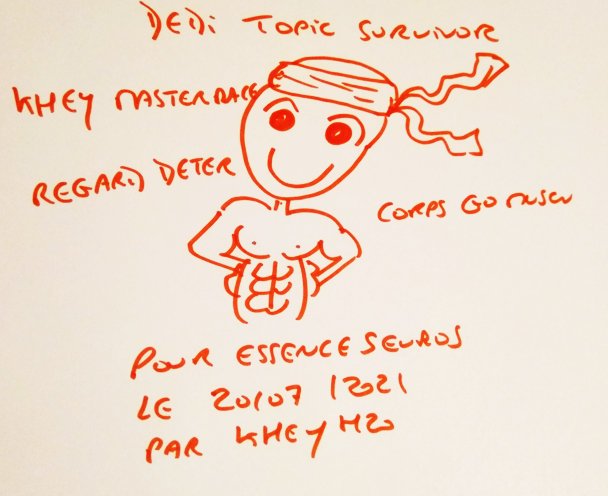 DEDI TOPIC SURVIVOR
KHEY MASTERRACE
REGARD DETER
CORPS GO MUSCU
POUR ESSENCE5EUROS
LE 20/07/2021
PAR KHEYH20